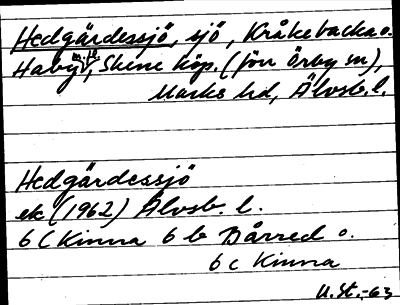 Hedgärdessjö, sjö, Kråkebacka o.
Haby m.fl., Skene köp. (förr Örby sn),
Marks hd, Älvsb. l.
Hedgärdessjö
ek (1962) Älvsb. l.
6 C Kinna 6 b Bårred o.
6 c Kinna
U.St.-63